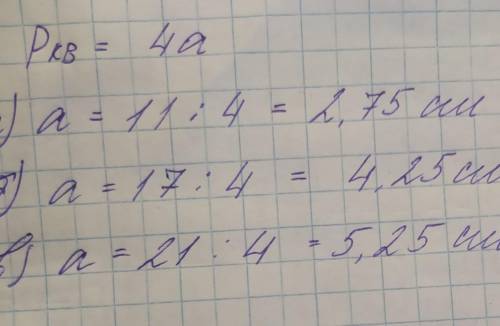 Pкв = 4a
а) a = 11 : 4 = 2,75 см
б) a = 17 : 4 = 4,25 см
в) a = 21 : 4 = 5,25 см